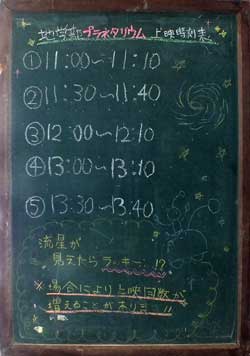 地学部プラネタリウム 上映時刻表
①11:00〜11:10
②11:30〜11:40
③12:00〜12:10
④13:00〜13:10
⑤13:30〜13:40
流星が
見えたらラッキー!?
※場合により上映回数が
増えることがあります!!